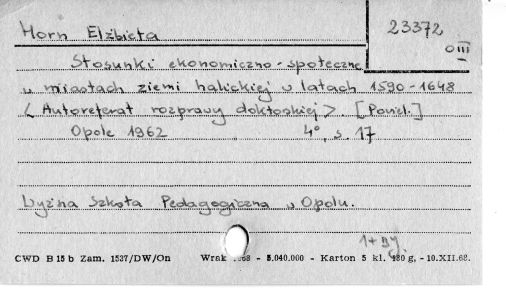 Horn Elżbieta
23372
0 III
Stosunki ekonomiczno-społeczne
w miastach ziemi halickiej w latach 1590-1648
< Autoreferat rozprawy doktorskiej >. [Powiel.]
Opole 1962 4°, s. 17
Wyższa Szkoła Pedagogiczna w Opolu.
CWD B 15 b Zam. 1537/DW/On Wrak - 5.040.000 - Karton 5 kl. 180 g, - 10.XII.68.